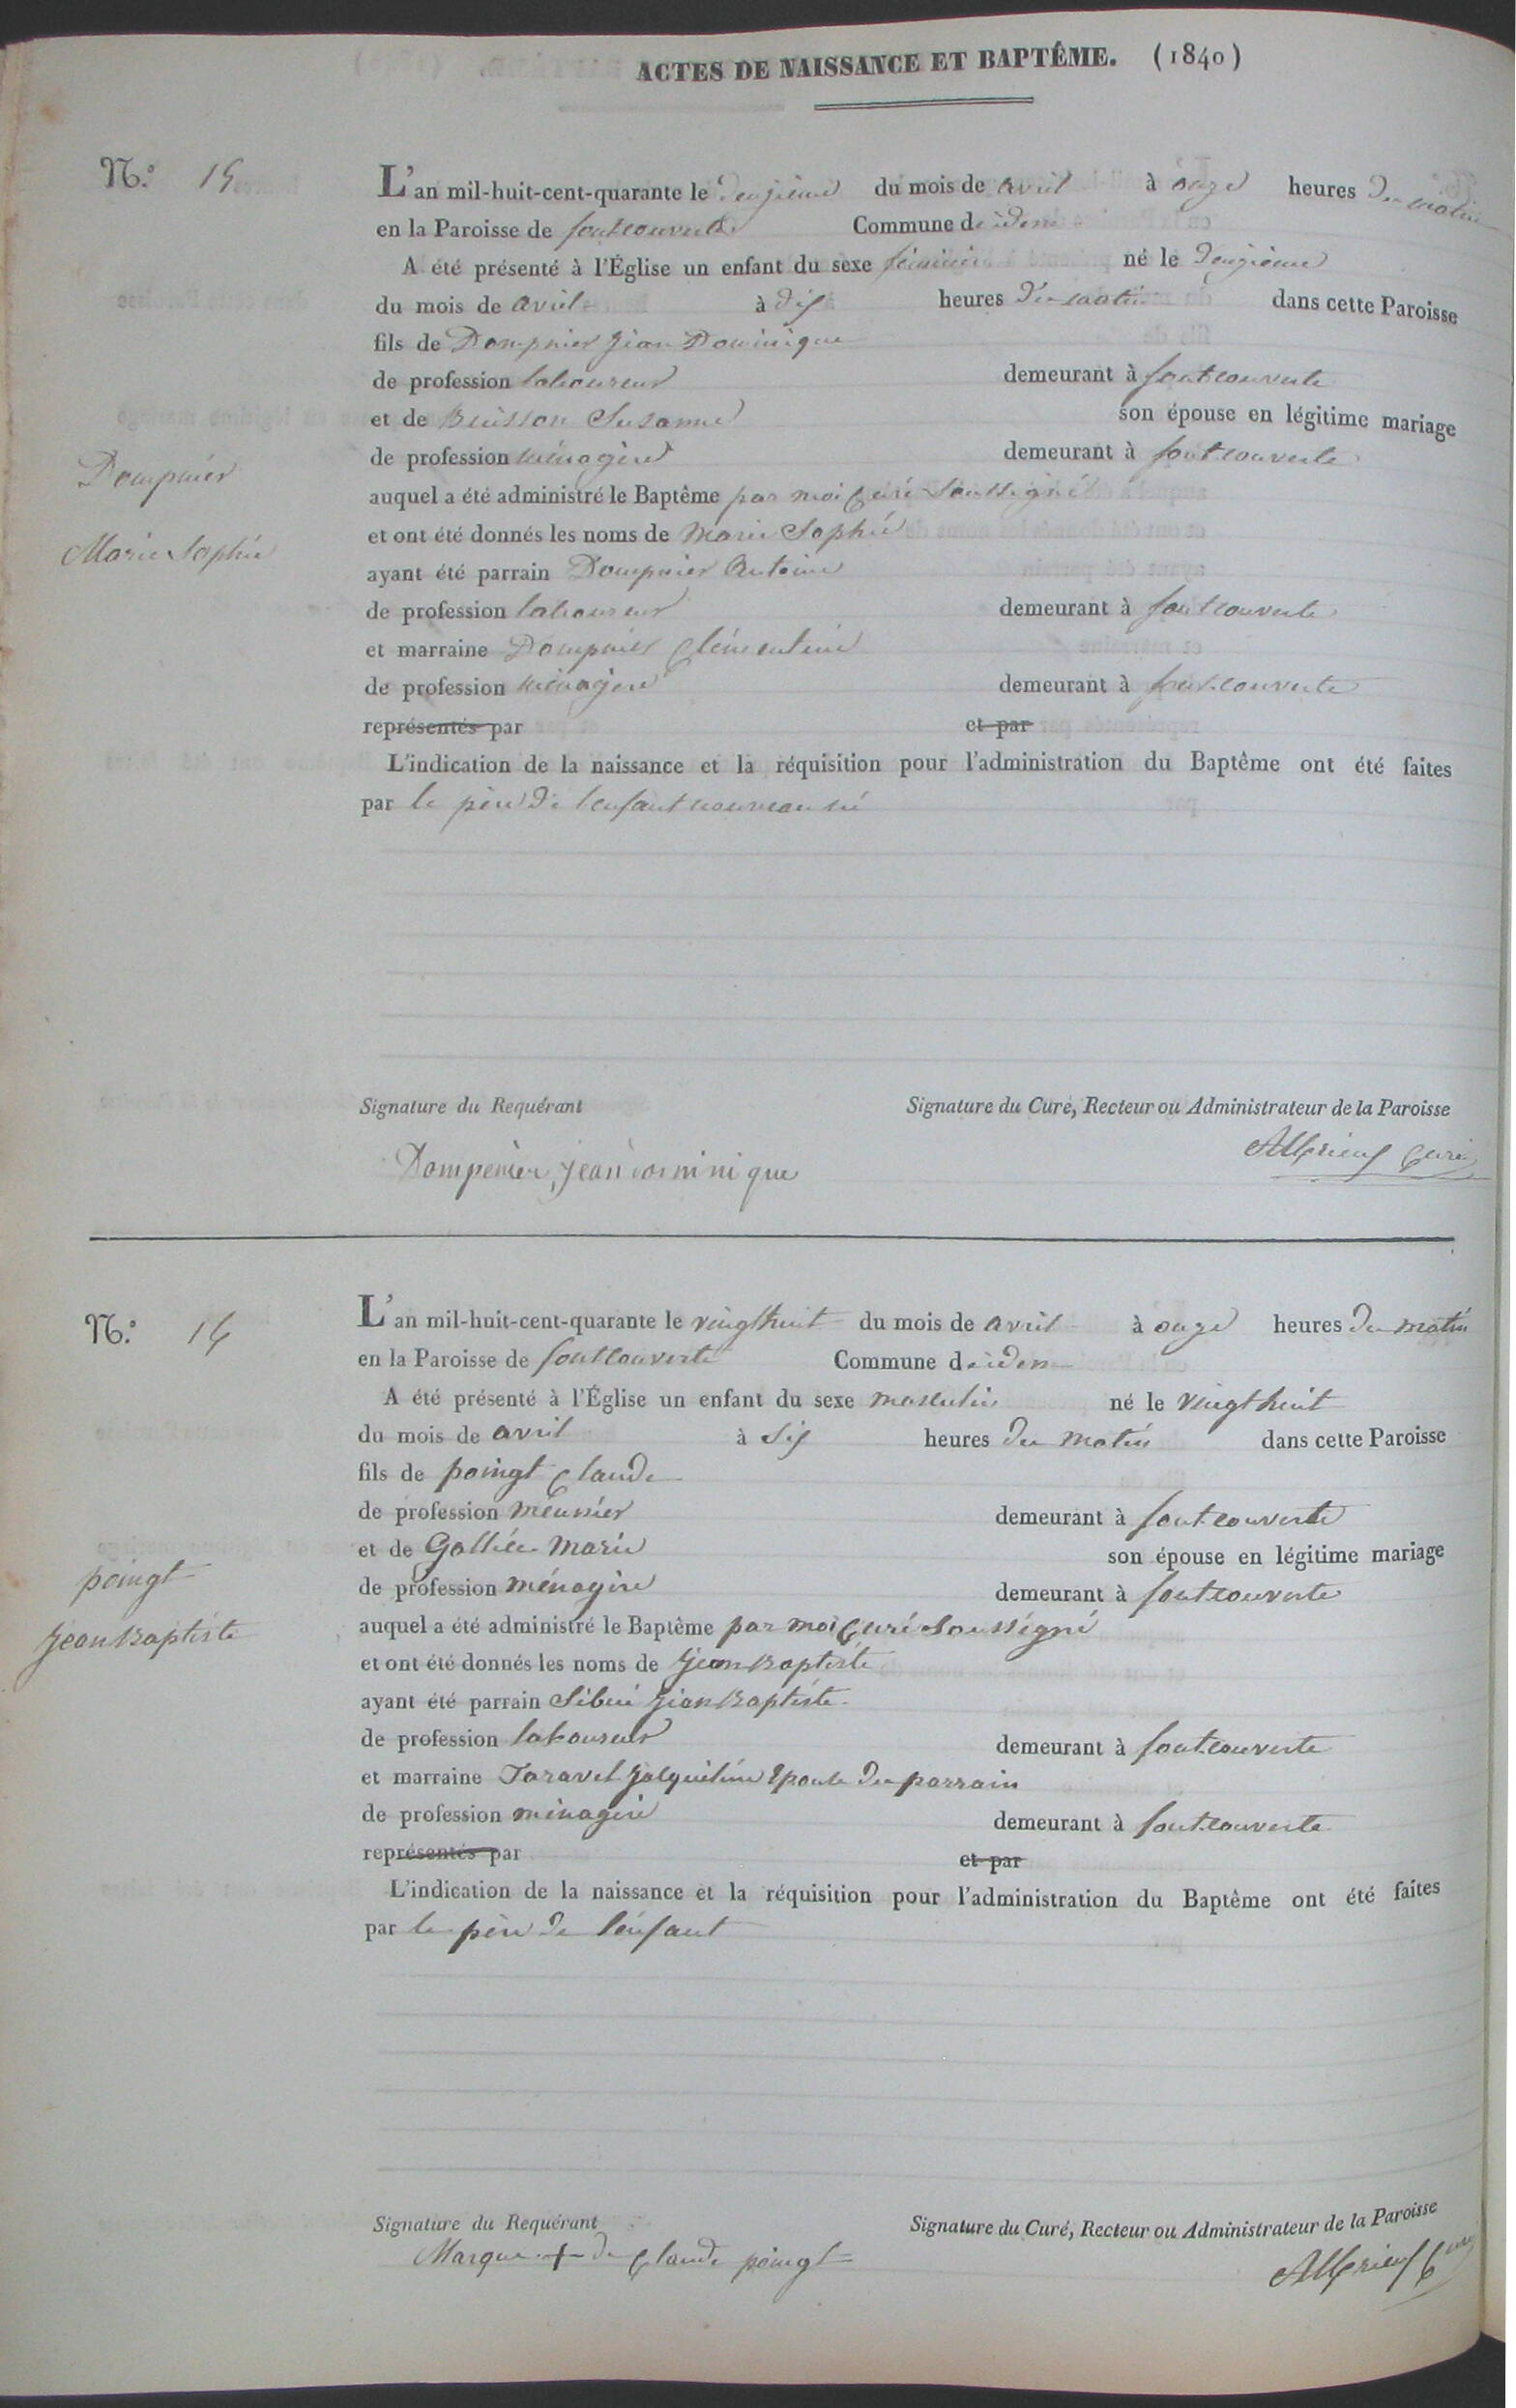 ACTES DE NAISSANCE ET BAPTÊME. (1840)
N.º 15
L'an mil-huit-cent-quarante le deuzième du mois de avril à onze heures du matin
en la Paroisse de fontcouverte Commune de idem
A été présenté à l'Église un enfant du sexe féminin né le deuzième
du mois de avril à dix heures du matin dans cette Paroisse
fils de Dompnier Jean Dominique
de profession laboureur demeurant à fontcouverte
et de Buisson Susanne son épouse en légitime mariage
de profession ménagère demeurant à fontcouverte
Dompnier
Marie Sophie
auquel a été administré le Baptême par moi Curé Soussigné
et ont été donnés les noms de Marie Sophie
ayant été parrain Dompnier Antoine
de profession laboureur demeurant à fontcouverte
et marraine Dompnier Clémentine
de profession ménagère demeurant à fontcouverte
représentés par et par
L'indication de la naissance et la réquisition pour l'administration du Baptême ont été faites
par le père de l'enfant nouveau né
Signature du Requérant Signature du Curé, Recteur ou Administrateur de la Paroisse
Dompenier, jean dominique curé
N.º 16
L'an mil-huit-cent-quarante le vingthuit du mois de avril à onze heures du matin
en la Paroisse de fontcouverte Commune de idem
A été présenté à l'Église un enfant du sexe masculin né le vingthuit
du mois de avril à six heures du matin dans cette Paroisse
fils de poingt Claude
de profession meunier demeurant à fontcouverte
et de Marie son épouse en légitime mariage
de profession ménagère demeurant à fontcouverte
poingt
Jean Baptiste
auquel a été administré le Baptême par moi Curé Soussigné
et ont été donnés les noms de Jean Baptiste
ayant été parrain Sibué Jean Baptiste
de profession laboureur demeurant à fontcouverte
et marraine Taravel Jacqueline Epouse du parrain
de profession ménagère demeurant à fontcouverte
représentés par et par
L'indication de la naissance et la réquisition pour l'administration du Baptême ont été faites
par le père de l'enfant
Signature du Requérant Signature du Curé, Recteur ou Administrateur de la Paroisse
Marque + de Claude poingt